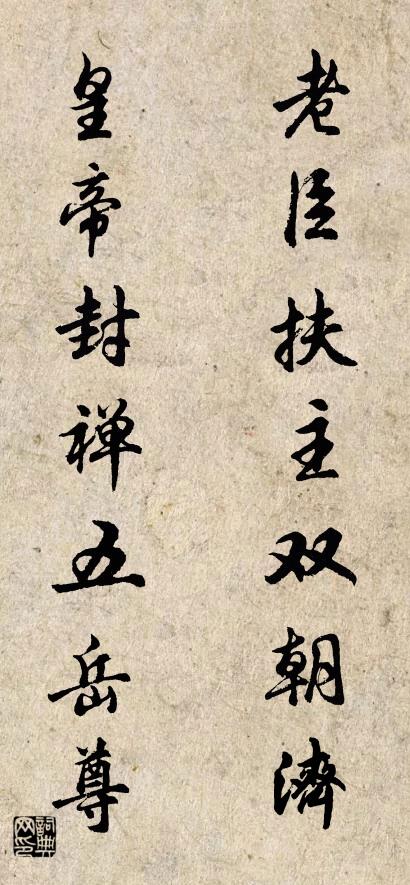 老臣扶主双朝濟
皇帝封禅五岳尊
詞典网印